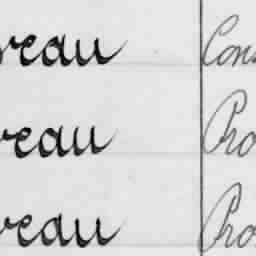 reau Con
reau Pro
reau Pro